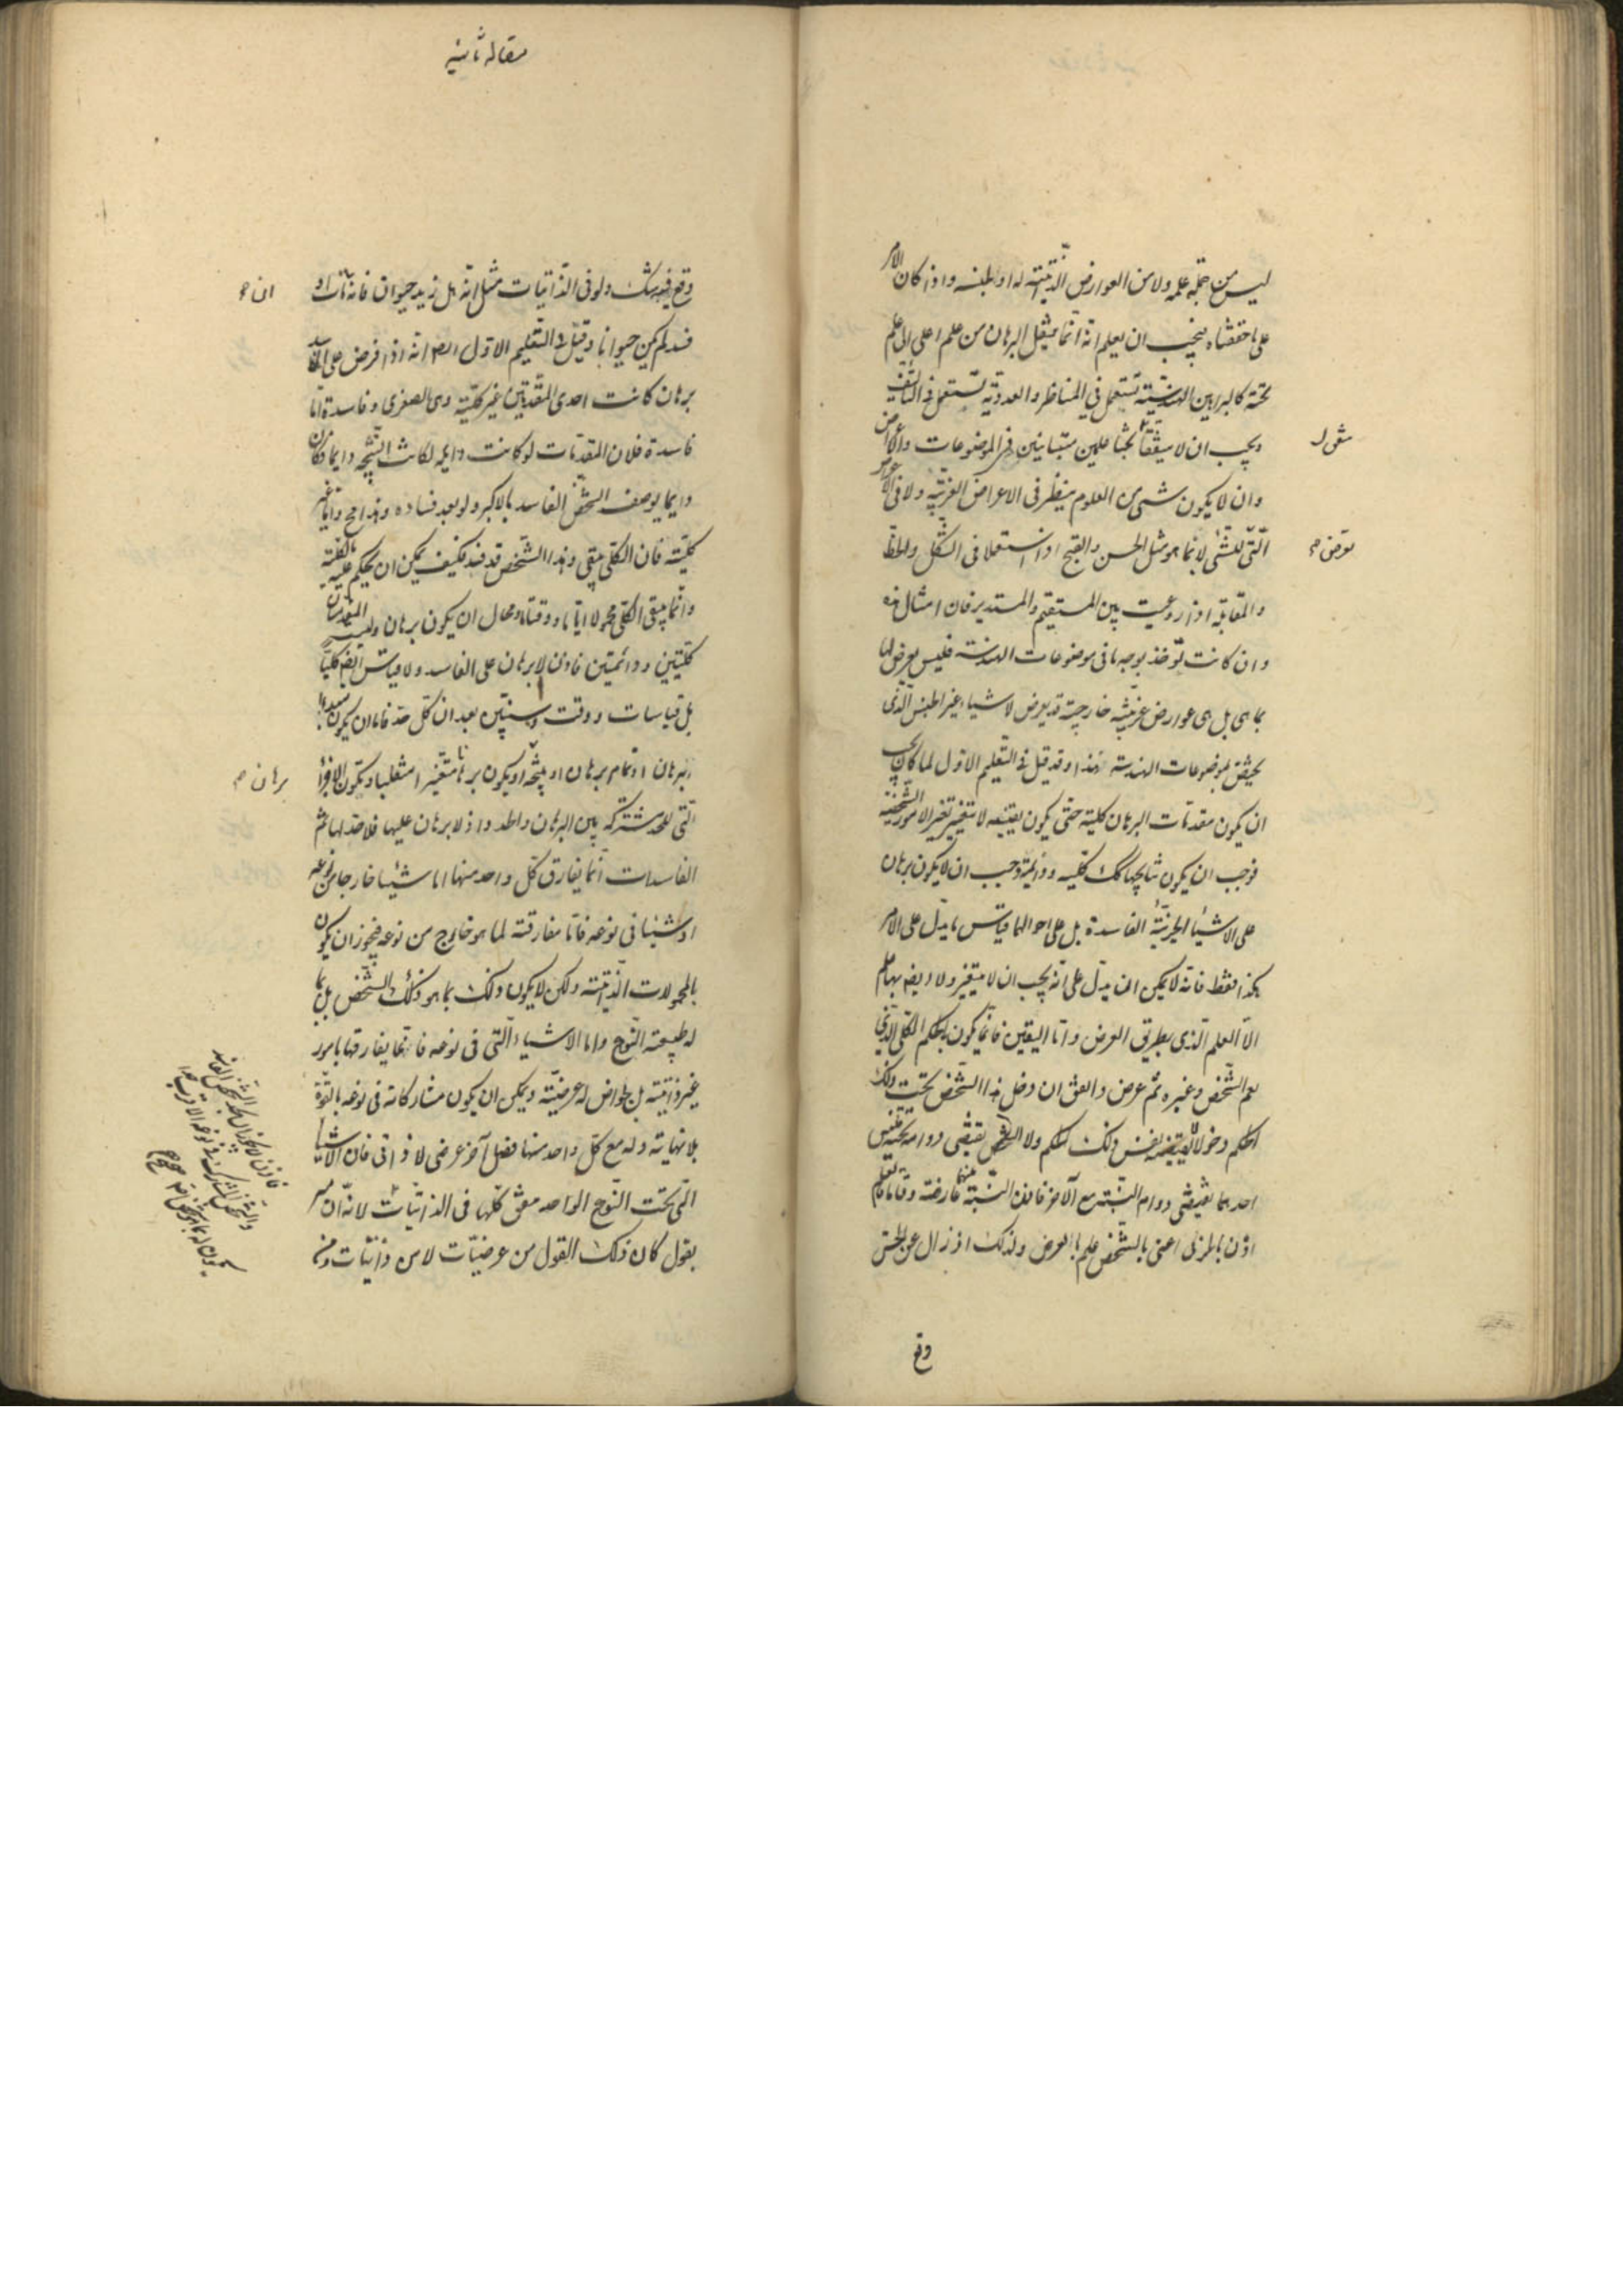 ليس من جملة علمه ولا من العوارض الذاتية له او لجنسه واذا كان الامر
على ما حققناه فيجب ان يعلم انه انما ينقل البرهان من علم اعلى الى علم
تحته كالبراهين الهندسية تستعمل في المناظر والعددية تستعمل في التاليف
ويجب ان لا يتفقا بحثا علمين متباينين في الموضوعات والاعراض
وان لا يكون شيء من العلوم ينظر في الاعراض الغريبة ولا في
التي للشيء لا بما هو مثل الحسن والقبح اذا استعملا في الشكل والخط
والمقابلة اذا روعيت بين المستقيم والمستدير فان امثال هذه
وان كانت توخذ بوجه ما في موضوعات الهندسة فليس يعرض لها
بما هي بل هي عوارض غريبة خارجية قد يعرض لاشياء غير الجنس الذي
يختص بموضوعات الهندسة هذا وقد قيل في التعليم الاول لما كان يجب
ان يكون مقدمات البرهان كلية حتى يكون يقينيه لا يتغير تغير الامور الشخصية
فوجب ان يكون نتايجها كك كلية ودايمة وجب ان لا يكون برهان
على الاشياء الجزئية الفاسدة بل على احوالها قياس ما يدل على الامر
هكذا فقط فانه لا يمكن ان يدل على انه يجب ان لا يتغير ولا ايضه بها علم
الا العلم الذي بطريق العرض واما اليقين فانما يكون بالحكم الكلي الذي
يعم الشخص وغيره ثم عرض واتفق ان دخل هذا الشخص تحت ذلك
الحكم دخولا لا يقتضيه نفس ذلك الحكم ولا الشخص يقتضي دوامه تحته فليس
احدهما يقتضي دوام النسبة مع الاخر فاذن النسبة بينهما عارضة وقتا ما فالعلم
اذن بالجزئي اعني بالشخص علم بالعرض ولذلك اذ زال عن الحس
وقع
منقول
مقالة ثانيه
وقع فيه شك ولو في الذاتيات مثل انه هل زيد حيوان فانه مات او
فسد لم يكن حيوانا وقيل في التعليم الاول ايضا انه اذا فرض على الفاسد
برهان كانت احدى المقدمتين غير كلية وهي الصغرى وفاسدة اما
فاسدة فلان المقدمات لو كانت دايمه لكانت النتيجه دايما وكان
دايما يوصف الشخص الفاسد بالاكبر ولو بعد فساده وهذا مح واما غير
كلية فان الكلي يبقى وهذا الشخص قد فسد فكيف يمكن ان يحكم عليه بالكلية
وانما يبقى الكلي محمولا اياما ووقتا ما ومحال ان يكون برهان وليست المقدمتان
كليتين ودائمتين فاذن لا برهان على الفاسد ولا قياس ايضه كليا
بل قياسات ووقت وسنبين بعد ان كل حد فاما ان يكون مبدا
البرهان او تمام برهان او نتيجة او يكون برهانا متغيرا متقلبا وتكون الاجزاء
التي للحد مشتركة بين البرهان والحد واذ لا برهان عليها فلا حد لها ثم
الفاسدات انما يفارق كل واحد منها اما شيئا خارجا من نوعه
او شيئا في نوعه فاما مفارقته لما هو خارج من نوعه فيجوز ان يكون
بالمحمولات الذاتية ولكن لا يكون ذلك بما هو ذلك الشخص بل بما
له طبيعة النوع واما الاشياء التي في نوعه فانما يفارقها بامور
غير ذاتية بل بخواص له عرضية ويمكن ان يكون مشاركاته في نوعه بالقوة
بلا نهاية وله مع كل واحد منها فصل آخر عرضي لا ذاتي فان الاشيا
التي تحت النوع الواحد متفق كلها في الذاتيات لانه ان
بقول كان ذلك القول من عرضيات لا من ذاتيات
برهان